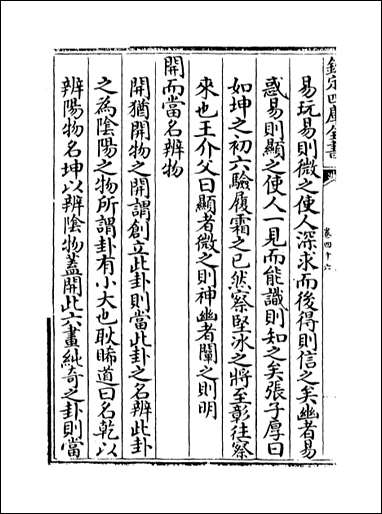 欽定四庫全書
卷四十六
易玩易則微之使人深求而後得則信之矣幽者易
惑易則顯之使人一見而能識則知之矣張子厚曰
如坤之初六驗履霜之已然察堅冰之將至彰往察
來也王介父曰顯者微之則神幽者闡之則明
開而當名辨物
開猶開物之開謂創立此卦則當此卦之名辨此卦
之為陰陽之物所謂卦有小大也耿睎道曰名乾以
辨陽物名坤以辨陰物蓋開此六畫純奇之卦則當